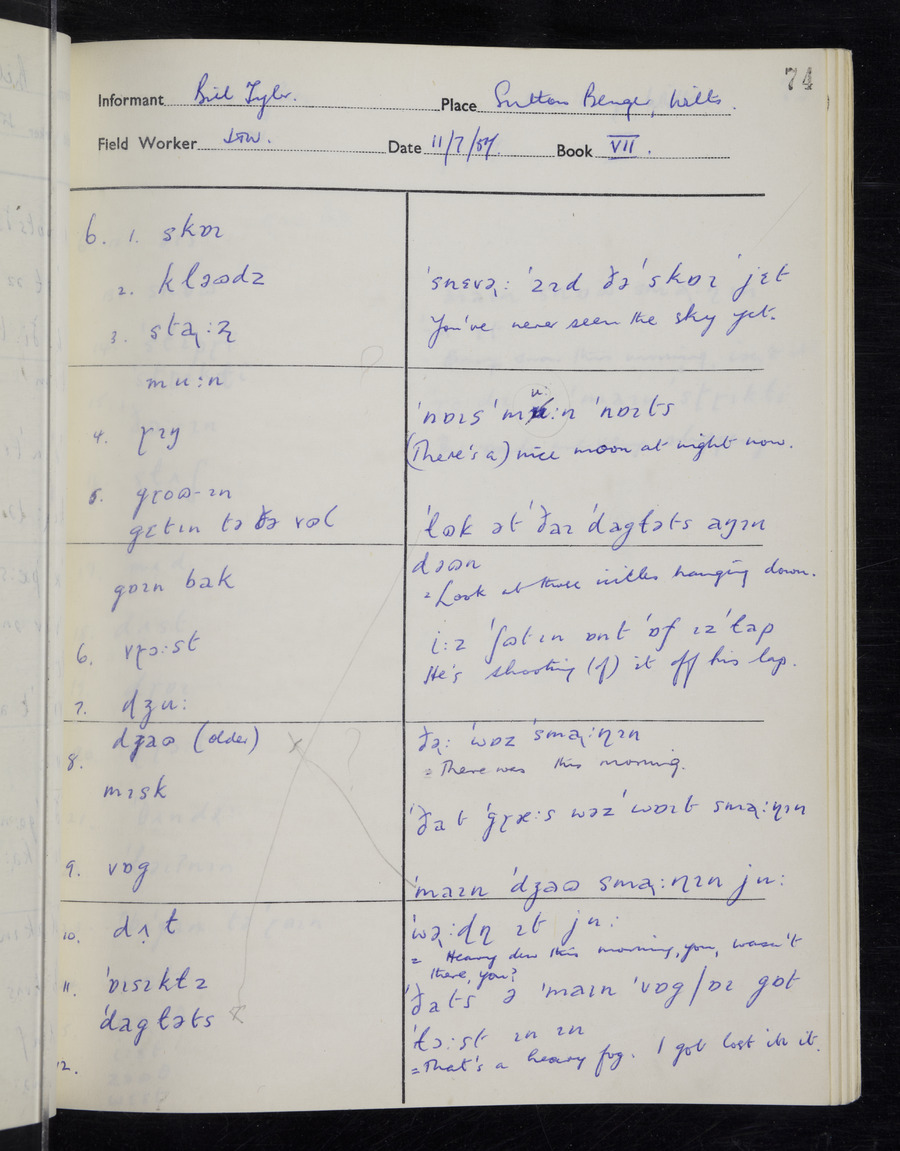 74
Informant Bill Tyler. Place Sutton Benger, Wilts.
Field Worker Date 11/7/57. Book VII.
6. 1. skɒɪ
2. kləʊdz
3. sta̢:z̢
mu:n
4.
5. gɛtɪn tə ðə vʊl
gɒɪn bak
6. vɽɔ:st
7. dʒu:
8. dʒaʊ (older)
mɪsk
9. vɒg
10.
11. ˈɒɪsɪktz
ˈdagtəts
12.
ˈsnɛvə̢: ˈzɪd ðə ˈskɒɪ ˈjɛt
You've never seen the sky yet.
ˈnɒɪs ˈmu:n ˈnɒɪts
(There's a) nice moon at night now.
ˈlʊk ət ˈðaɪ ˈdagtəts aŋɪn
dəʊn
= Look at those icicles hanging down.
i:z ˈʃʊtɪn ɒnt ˈɒf ɪz ˈlap
He's shooting (of) it off his lap.
ðə̢: ˈwɒz ˈsma̢:ɳɪn
= There was this morning.
ˈðat ˈgɽæ:s wəz ˈwɒɪt sma̢:ɳɪn
ˈmaɪn ˈdʒaʊ sma̢:ɳɪn ju:
ˈwə̢:dn̩ ɪt ju:
= Heavy dew this morning, you, wasn't
there, you?
ˈðats ə ˈmaɪn ˈvɒg/ɒɪ gɒt
ˈlɔ:st ɪn ɪn
= That's a heavy fog. I got lost in it.